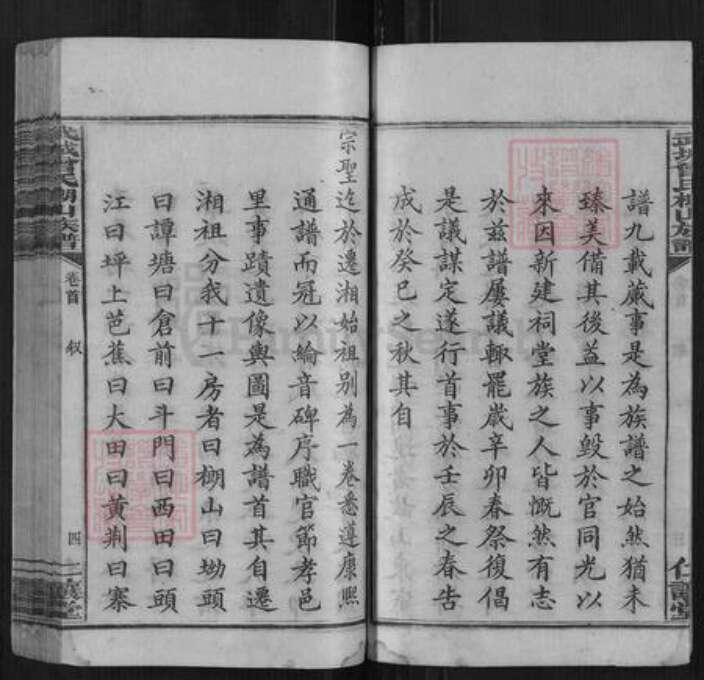 譜九載蕆事是為族譜之始然猶未
臻美備其後益以事毀於官同光以
來因新建祠堂族之人皆慨然有志
於兹譜屢議輒罷歲辛卯春祭復倡
是議謀定遂行首事於壬辰之春告
成於癸巳之秋其自
宗聖迄於遷湘始祖别為一卷悉遵康熙
通譜而冠以綸音碑序職官節孝邑
里事蹟遺像輿圖是為譜首其自遷
湘祖分我十一房者曰棚山曰坳頭
曰譚塘曰倉前曰斗門曰西田曰頭
江曰坪上芭蕉曰大田曰黄荆曰寨
武城曾氏棚山族譜
卷首
叙
四